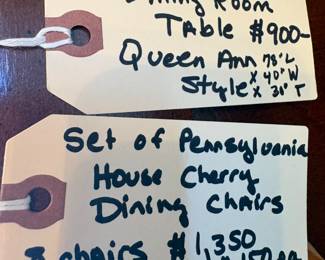 Dining Room
Table $900-
Queen Ann 78"L
Style x 40" W
x 31" T
Set of Pennsylvania
House Cherry
Dining Chairs
chairs $1,350